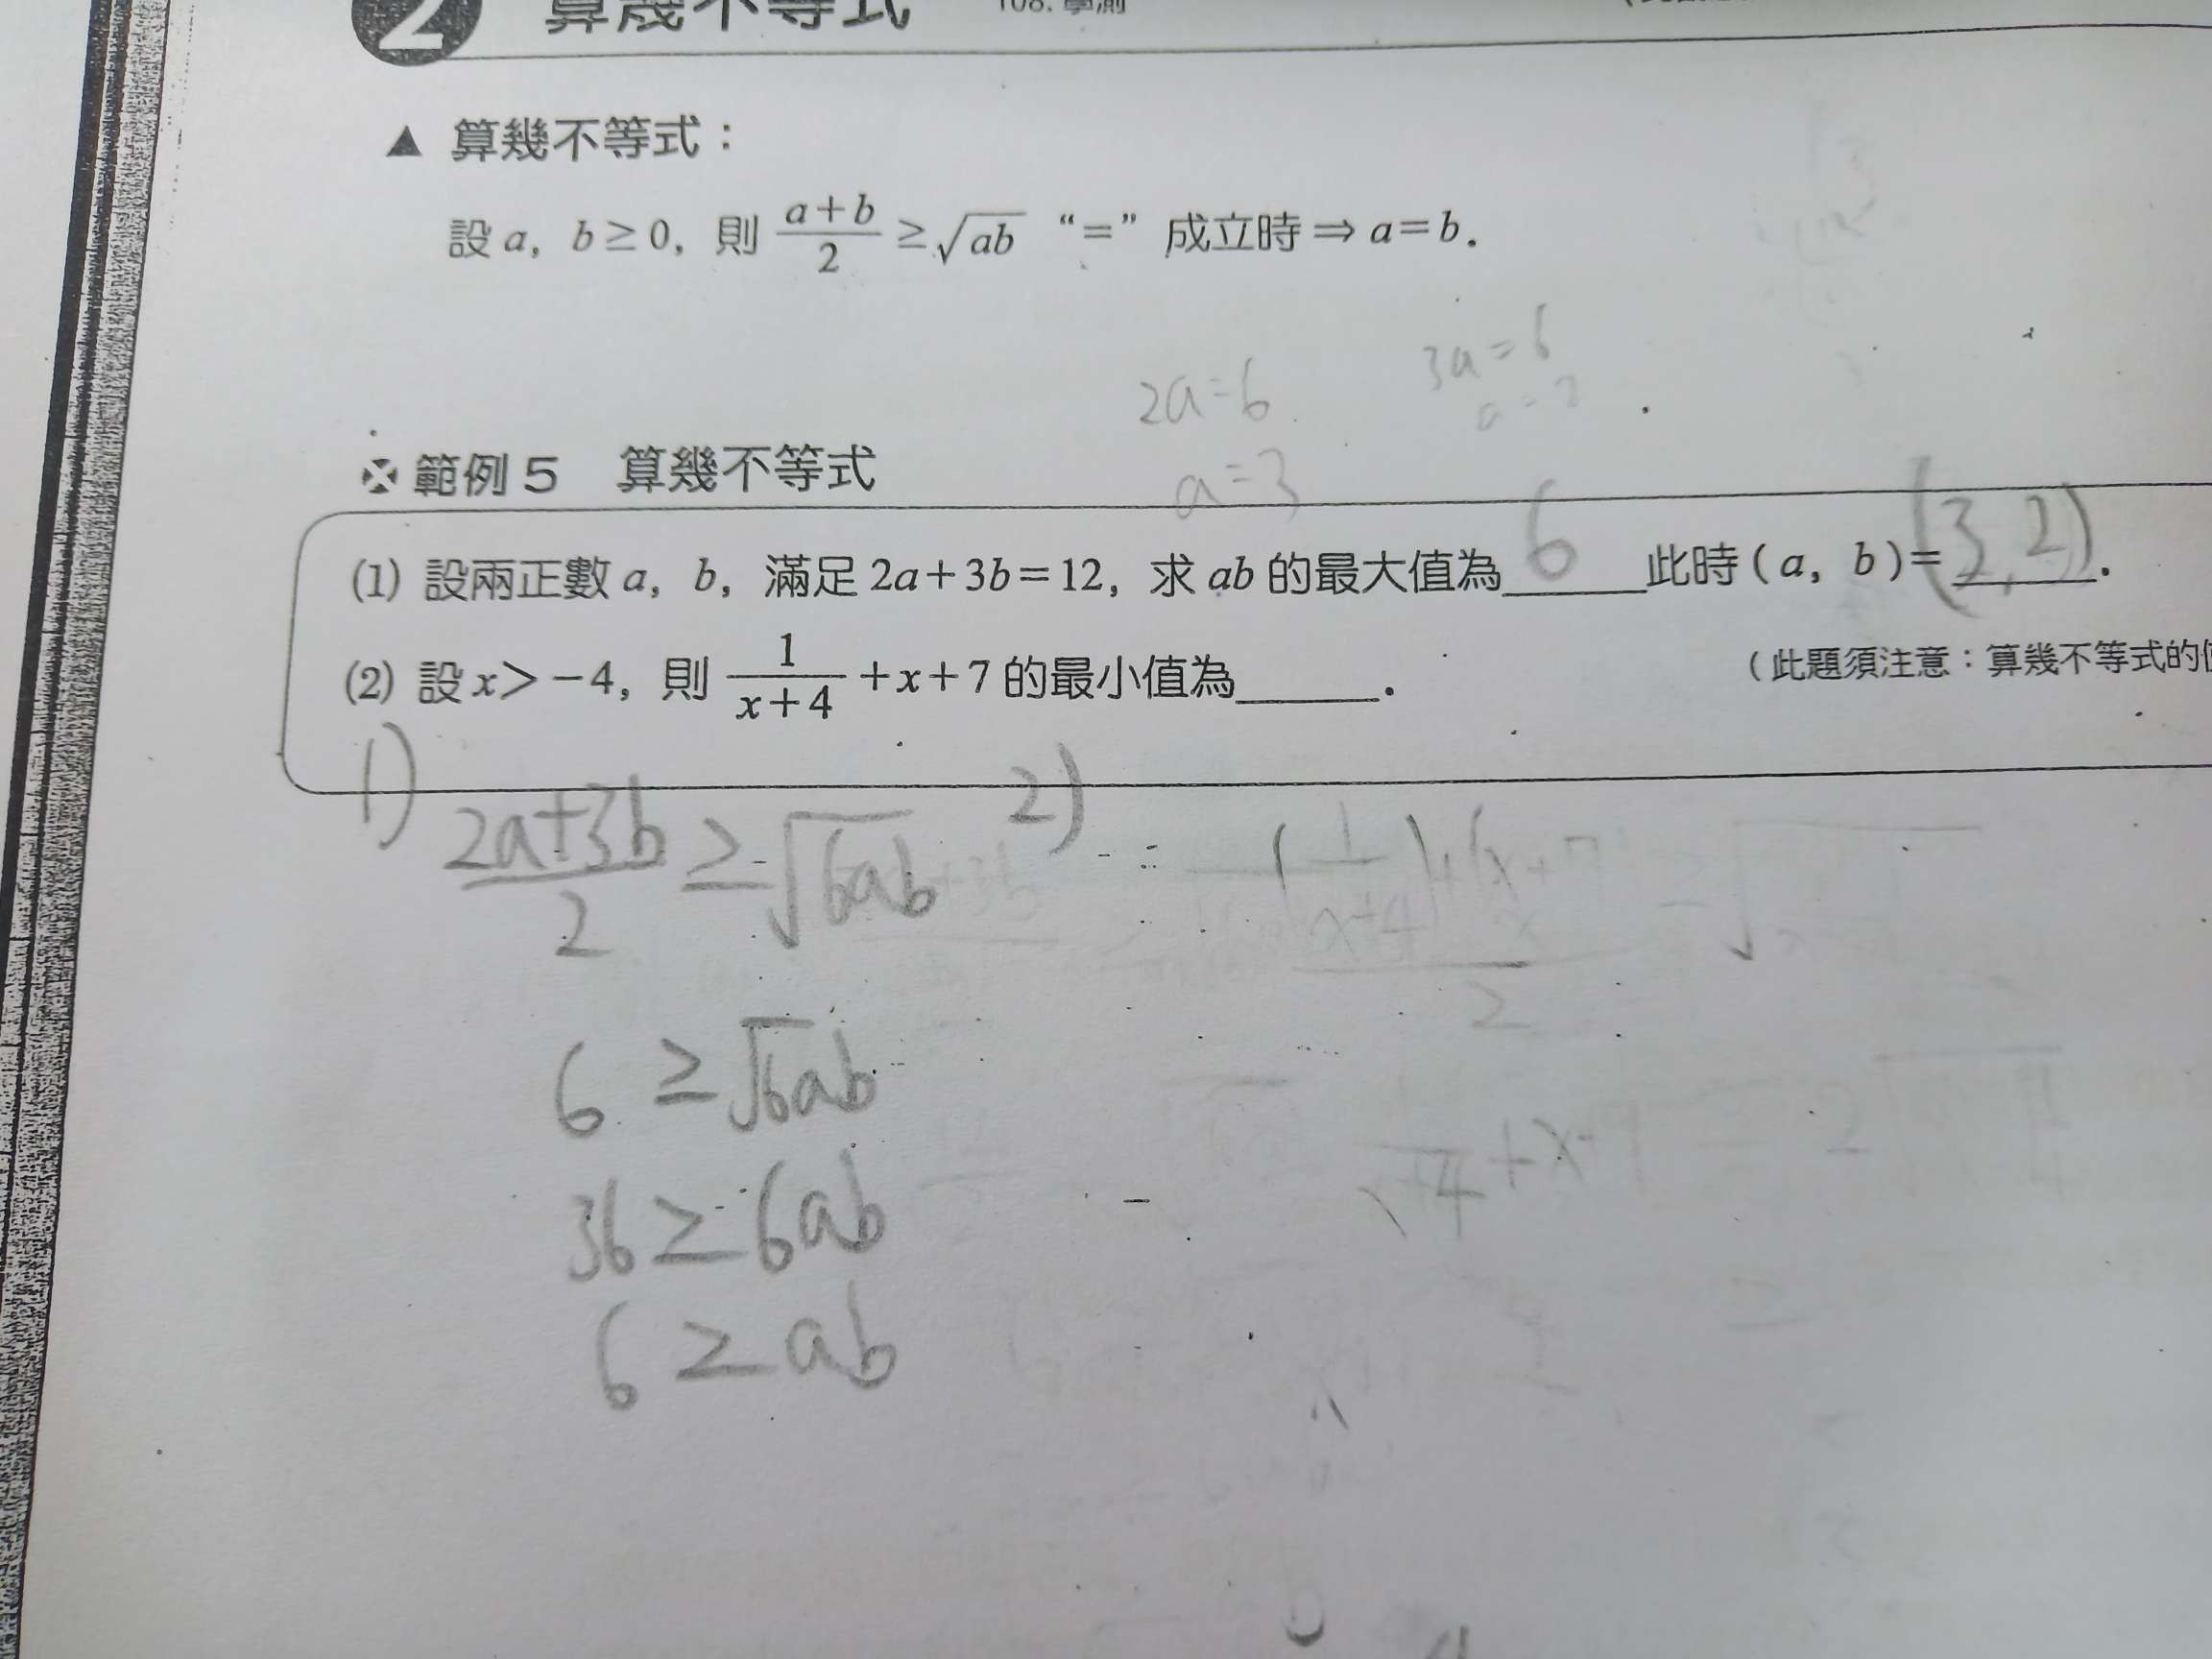 2 算幾不等式 108.學測
▲ 算幾不等式：
設 a, b≥0, 則 (a+b)/2 ≥ √ab “=” 成立時⇒a=b.
2a=6 3a=6
a=3
範例 5 算幾不等式
(1) 設兩正數 a, b, 滿足 2a+3b=12, 求 ab 的最大值為 6 此時 (a, b)= (3, 2).
(2) 設 x>-4, 則 1/(x+4) +x+7 的最小值為______.
(此題須注意：算幾不等式的
1) (2a+3b)/2 ≥ √6ab
6 ≥ √6ab
36 ≥ 6ab
6 ≥ ab
2)